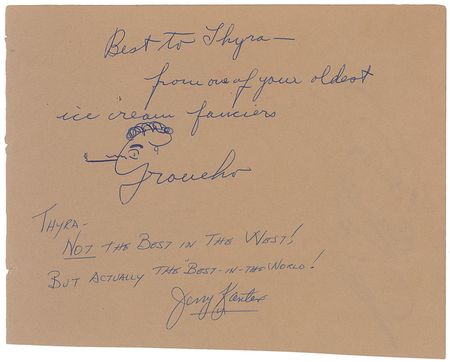 Best to Thyra—
from one of your oldest
ice cream fanciers
Groucho
THYRA-
NOT THE BEST IN THE WEST!
BUT ACTUALLY THE "BEST-IN-THE-WORLD!
Jerry Kanter